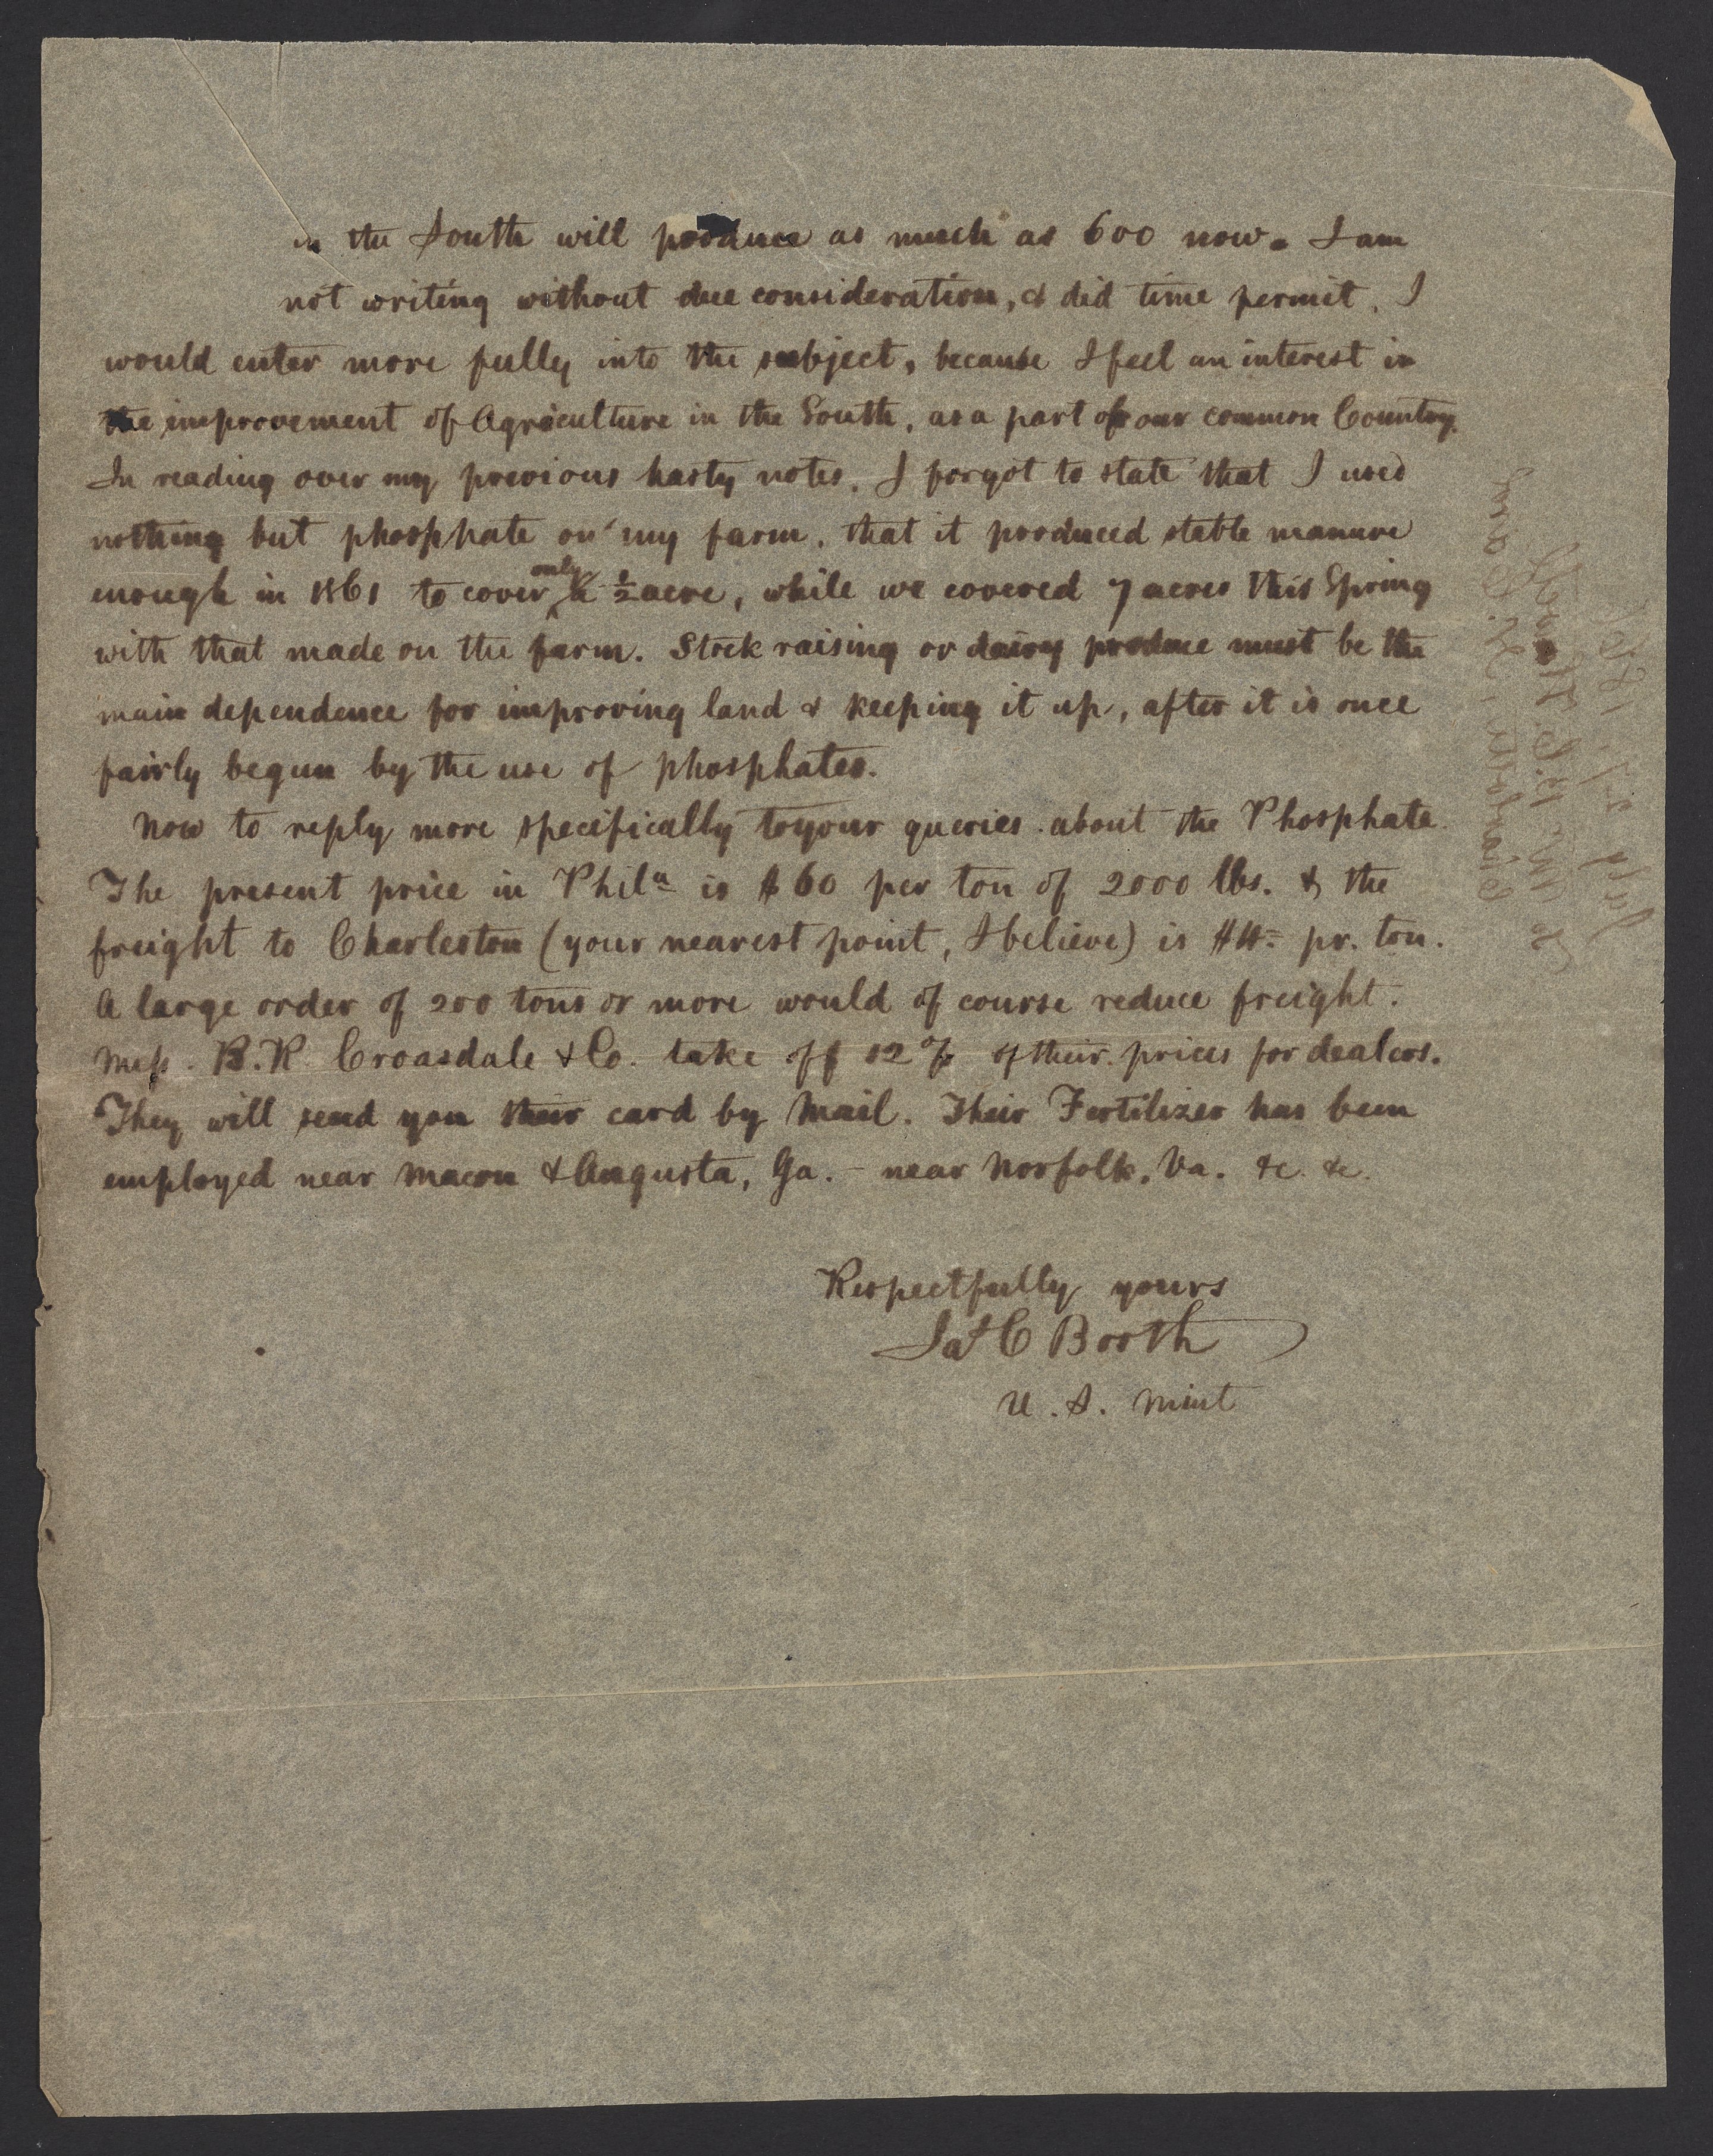 in the South will produce as much as 600 now. I am
not writing without due consideration, & did time permit, I
would enter more fully into the subject, because I feel an interest in
the improvement of Agriculture in the South, as a part of our common Country.
In reading over my previous hasty notes, I forgot to state that I used
nothing but phosphate on my farm, that it produced stable manure
only
enough in 1861 to cover ½ acre, while we covered 7 acres this Spring
with that made on the farm. Stock raising or dairy produce must be the
main dependence for improving land & keeping it up, after it is once
fairly begun by the use of phosphates.
Now to reply more specifically to your queries about the Phosphate.
The present price in Phila is $60 per ton of 2000 lbs. & the
freight to Charleston (your nearest point, I believe) is pr. ton.
A large order of 200 tons or more would of course reduce freight.
Mess. B.R. Croasdale & Co. take off 12% of their prices for dealers.
They will send you their card by Mail. Their Fertilizer has been
employed near Macon & Augusta, Ga. - near Norfolk, Va. &c. &c.
Respectfully yours
Jas C Booth
U. S. Mint